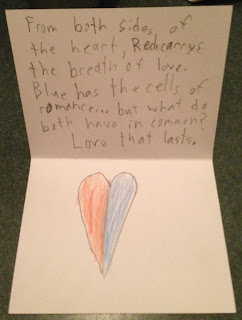 From both sides of
the heart, Red carrys
the breath of love.
Blue has the cells of
romance... but what do
both have in common?
Love that lasts.